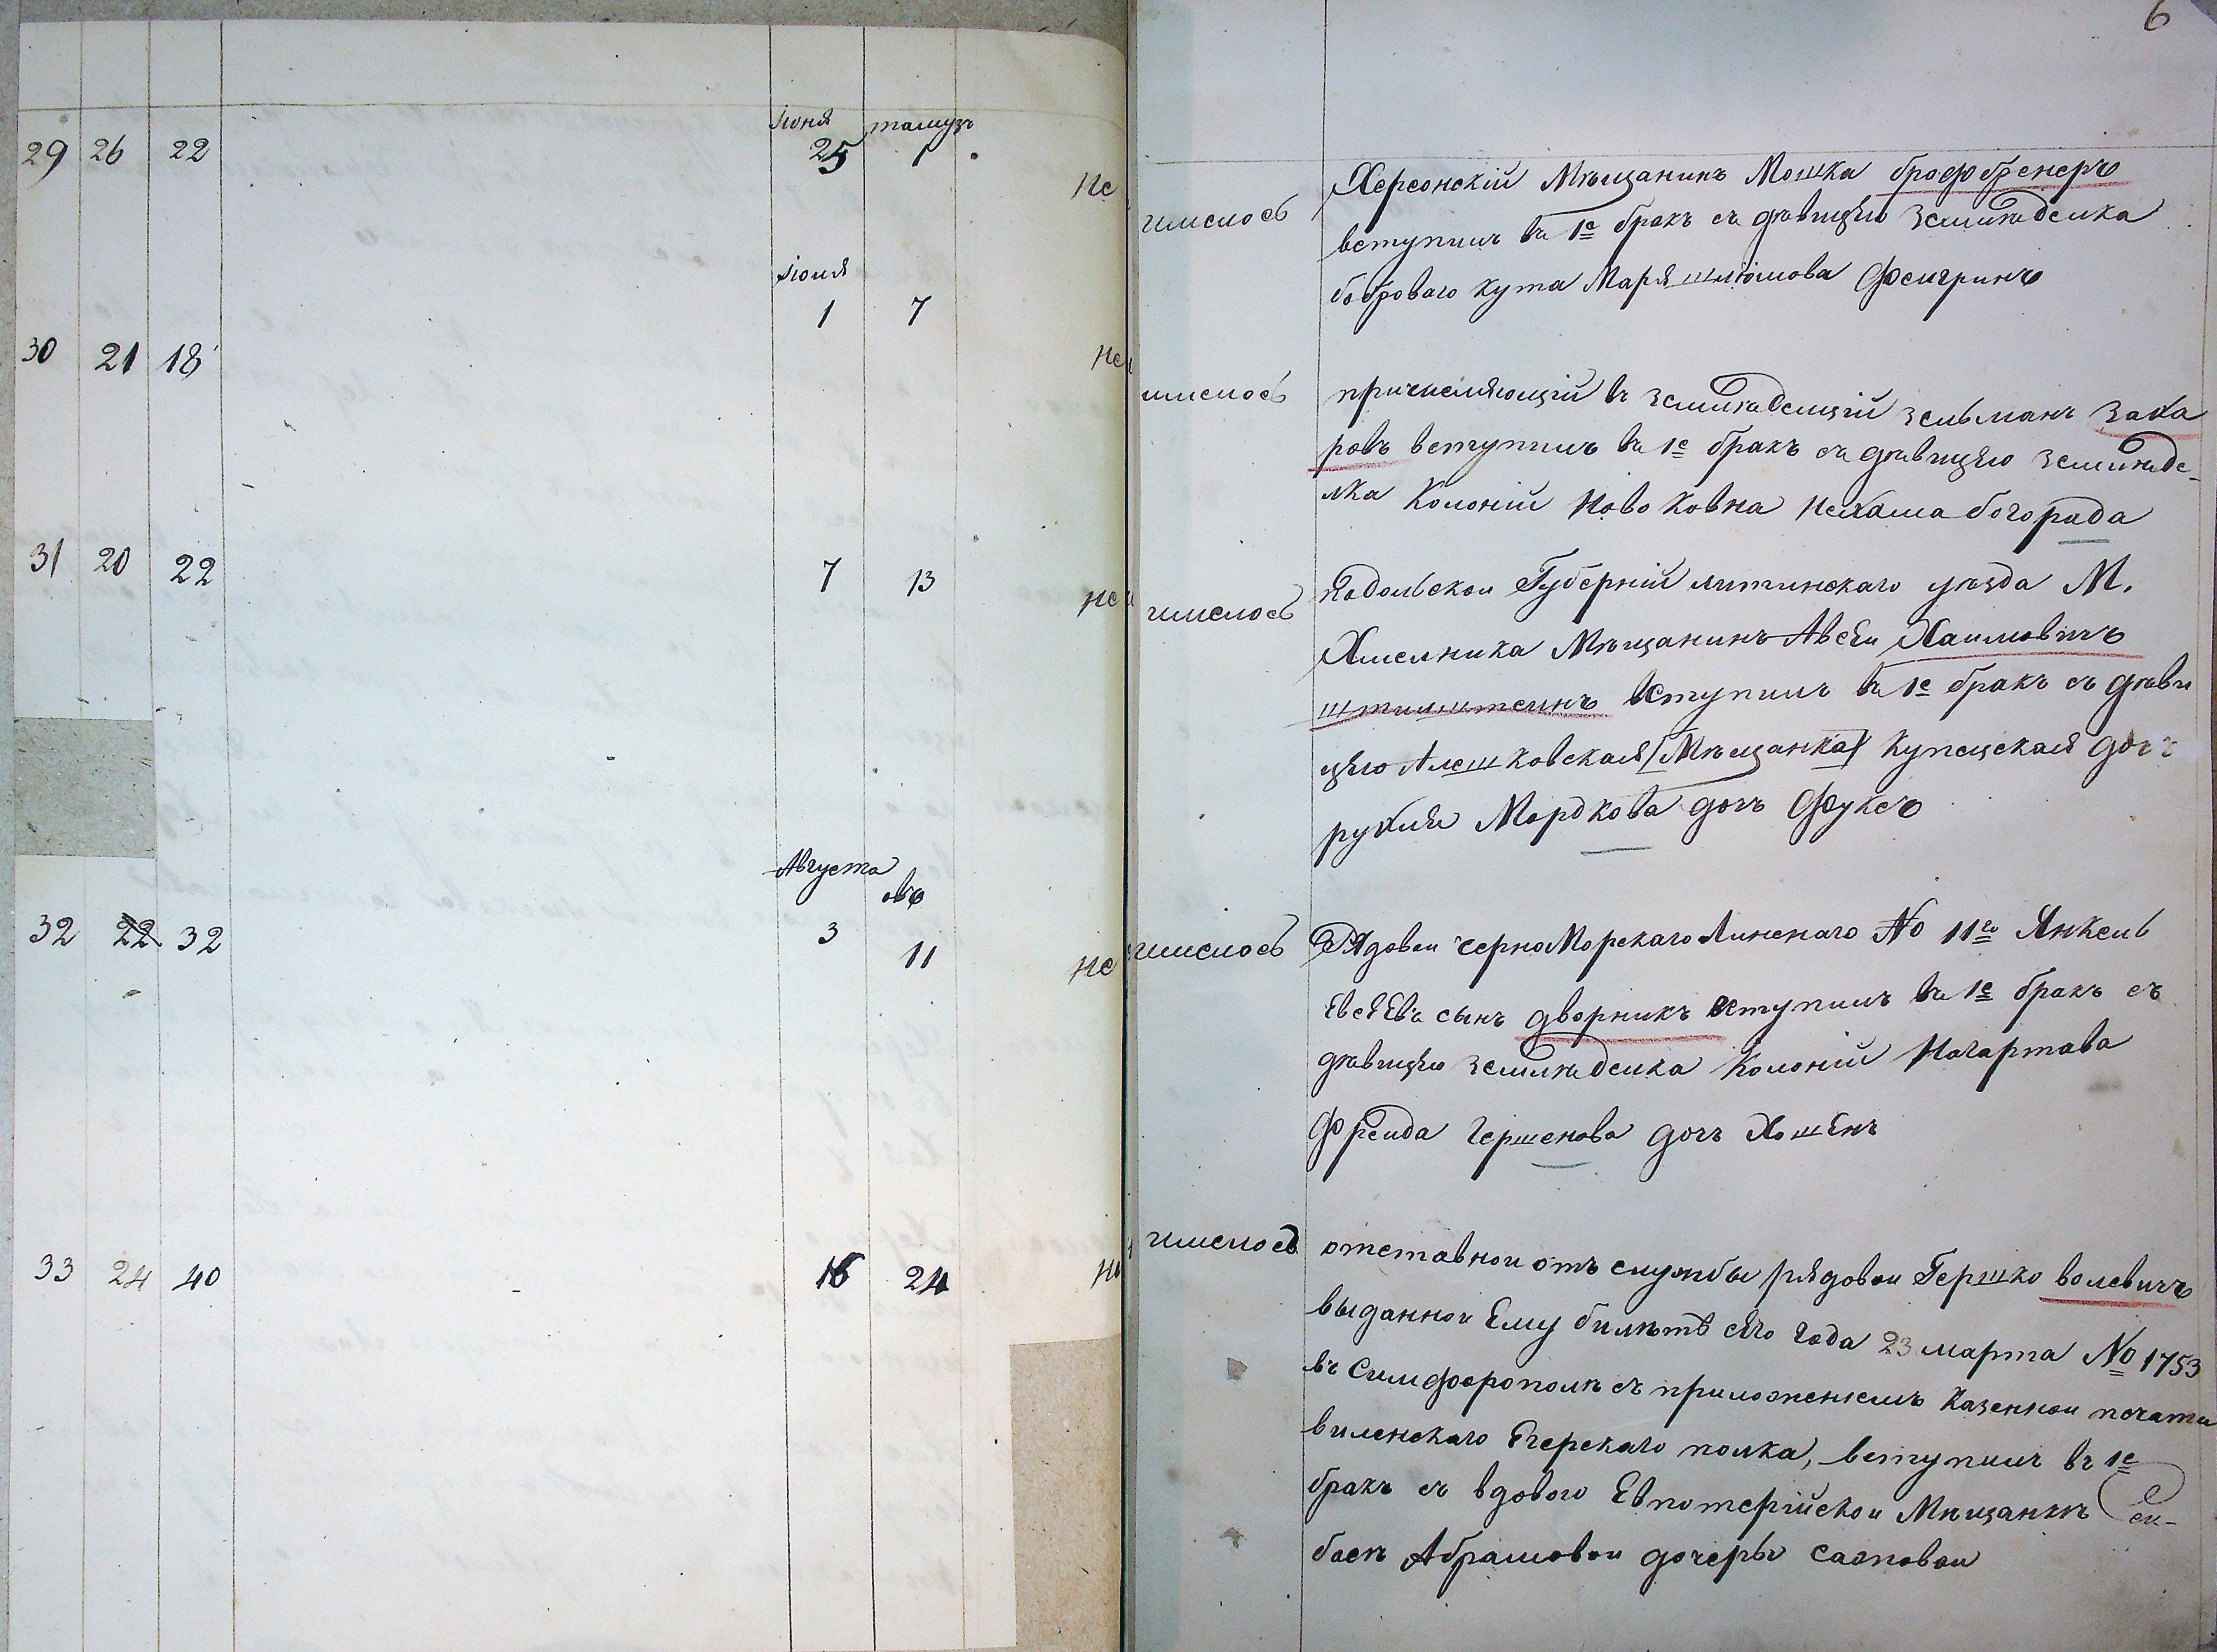 6
Іюня тамузъ
29 26 22 25 1 Не
имелось Херсонскій Мѣщанинъ Мошка брофбренеръ
вступилъ въ 1е бракъ съ дѣвицѣю Землѣделка
боброваго кута Маря шлюмова Фенгринъ
Іюля
1 7
30 21 18 Не
имелось причисляющій въ землѣделцій зельманъ заха
ровъ вступилъ въ 1е бракъ съ дѣвицѣю землѣде-
лка Колоній Ново Ковна Нехама богорада
31 20 22 7 13 Не
имелось Подольскои Губерній литинскаго уѣзда М.
Хмелника Мѣщанинъ Авсеи Хаимовичъ
штилштеинъ вступилъ въ 1е бракъ съ дѣви
цѣю Алешковская (Мѣщанка) купецская доч
рухля Мордкова дочъ Фуксъ
Августа
овъ
32 22 32 3 11 Не
имелось Рядовои черноМорскаго Линенаго No 11го Янкель
Евсѣевъ сынъ дворникъ вступилъ въ 1е бракъ съ
дѣвицѣю землѣделка Колоній Нагартава
Фреида Гершенова дочъ Хошенъ
33 24 40 16 24 Не
имелось отставнои отъ службы рядовои Гершко волевичъ
выданнои Ему билѣтъ сѣго года 23 марта No 1753
въ Симферополѣ съ приложеніемъ Казеннои печати
виленскаго Егерскаго полка, вступилъ въ 1е
бракъ съ вдовою Евпоторійскои Мѣщанкѣ Си-
баѣ Абрамовои дочеры